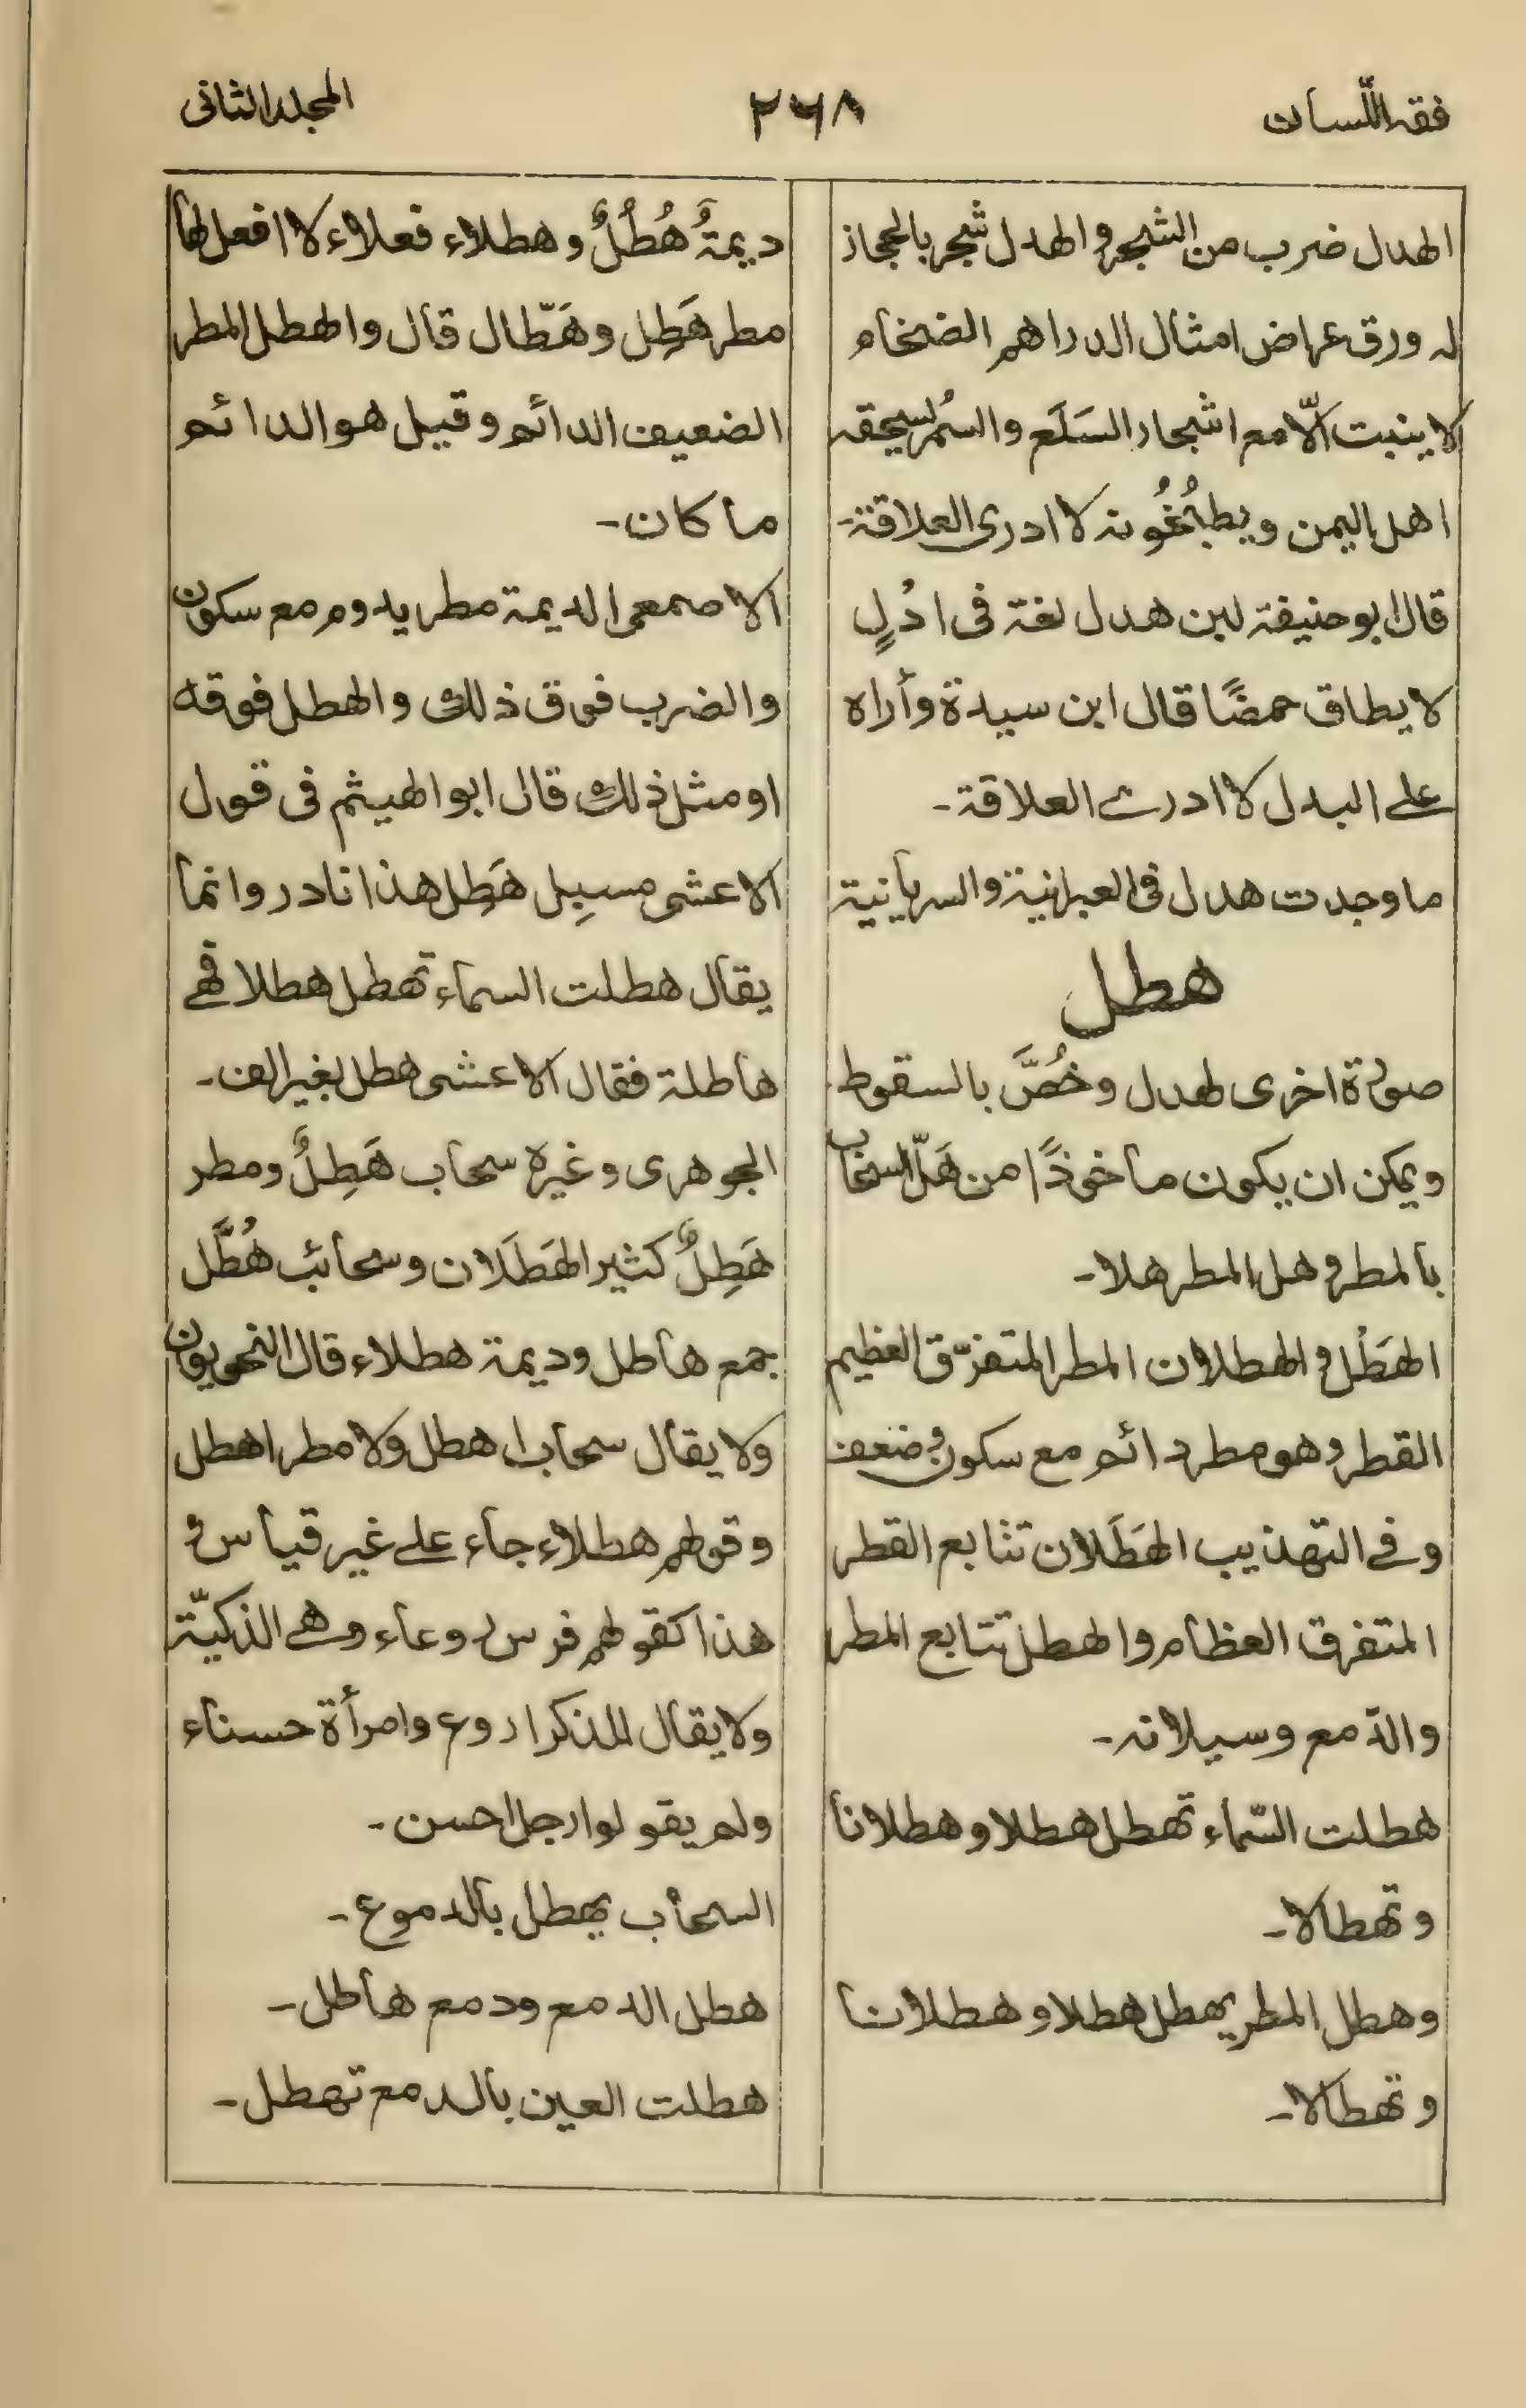 فقہ اللّسان
٢٦٨
المجلد الثانی
الهدال ضرب من الشجر و الهدال شجر بالحجاز
لہ ورق عراض امثال الدراهم الضخام
لا ینبت الّا مع اشجار السَلَع والسُمُر یسحقہ
اهل الیمن ویطبُخُونہ لا ادری العلاقۃ۔
قال ابو حنیفۃ لبن هدل لغۃ فی ادُلٍ
لا یطاق حمضًا قال ابن سیدۃ وأراہ
علے البدل لا ادرے العلاقۃ۔
ما وجدت هدل فی العبرانیۃ والسریانیۃ
هطل
صورۃ اخری لهدل وخُصَّ بالسقوط
ویمکن ان یکون ماخوذًا من هَلّ السحاب
بالمطر و هل المطر هلا۔
الهَطْل و الهطلان المطر المتفرّق العظیم
القطر و هو مطر دائم مع سکون و ضعف
وفے التهذیب الهَطَلان تتابع القطر
المتفرق العظام والهطل تتابع المطر
والدّمع وسیلانہ۔
هطلت السّماء تهطل هطلا و هطلانا
و تهطالا۔
وهطل المطر یهطل هطلا و هطلانا
و تهطالا۔
دیمۃٌ هُطُلٌ و هطلاء فعلاء لا افعل لها
مطر هَطِل وهَطّال قال والهطل المطر
الضعیف الدائم و قیل هو الدائم
ما کان۔
الاصمعی الدیمۃ مطر یدوم مع سکون
والضرب فوق ذلک والهطل فوقه
او مثل ذلک قال ابو الهیثم فی قول
الاعشی مسبِل هَطِل هذا نادر وانما
یقال هطلت السماء تهطل هطلا فهے
هاطلۃ فقال الاعشی هطل بغیر الف۔
الجوهری وغیرہ سحاب هَطِلٌ ومطر
هَطِلٌ کثیر الهَطَلان وسحائب هُطَّل
جمع هاطل ودیمۃ هطلاء قال النحویون
ولا یقال سحاب اهطل ولا مطر اهطل
وقولهم هطلاء جاء علے غیر قیاس و
هذا کقولهم فرس روعاء وهے الذکیّۃ
ولا یقال للذکر اروع وامرأۃ حسناء
ولم یقولوا رجل احسن۔
السحاب یهطل بالدموع۔
هطل الدمع ودمع هاطل۔
هطلت العین بالدمع تهطل۔